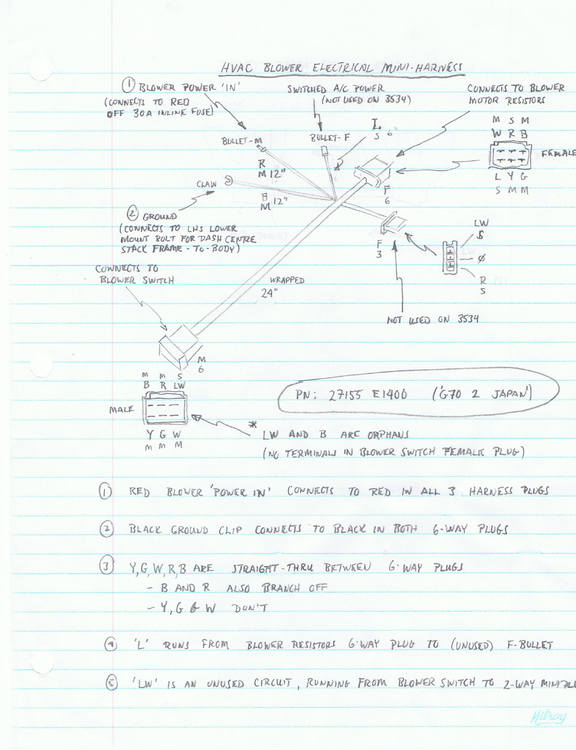 HVAC BLOWER ELECTRICAL MINI-HARNESS
① BLOWER POWER 'IN'
(CONNECTS TO RED
OFF 30A INLINE FUSE)
SWITCHED A/C POWER
(NOT USED ON 3534)
CONNECTS TO BLOWER
MOTOR RESISTORS
BULLET-M
BULLET-F
L
S 6"
M S M
W R B
FEMALE
L Y G
S M M
R
M 12"
CLAW
B
M 12"
F
6
② GROUND
(CONNECTS TO LHS LOWER
MOUNT BOLT FOR DASH CENTRE
STACK FRAME-TO-BODY)
F
3
LW
S
Ø
R
S
CONNECTS TO
BLOWER SWITCH
WRAPPED
24"
NOT USED ON 3534
M
6
M M S
B R LW
MALE
Y G W
M M M
PN: 27155 E1400 ('G70 2 JAPAN')
* LW AND B ARE ORPHANS
(NO TERMINALS IN BLOWER SWITCH FEMALE PLUG)
① RED BLOWER 'POWER IN' CONNECTS TO RED IN ALL 3 HARNESS PLUGS
② BLACK GROUND CLIP CONNECTS TO BLACK IN BOTH 6-WAY PLUGS
③ Y,G,W,R,B ARE STRAIGHT-THRU BETWEEN 6-WAY PLUGS
- B AND R ALSO BRANCH OFF
- Y, G & W DON'T
④ 'L' RUNS FROM BLOWER RESISTORS 6-WAY PLUG TO (UNUSED) F-BULLET
⑤ 'LW' IS AN UNUSED CIRCUIT, RUNNING FROM BLOWER SWITCH TO 2-WAY